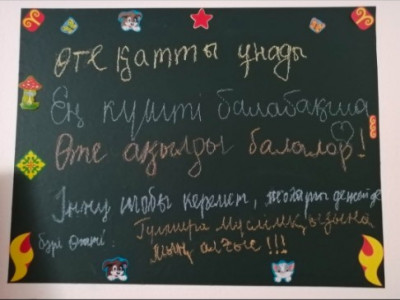 Өте қатты ұнады
Ең күшті балабақша
Өте ақылды балалар!
Інжу тобы керемет, жоғары деңгейде
бәрі өтті: Гүлнира Мүслімқызына
мың алғыс!!!